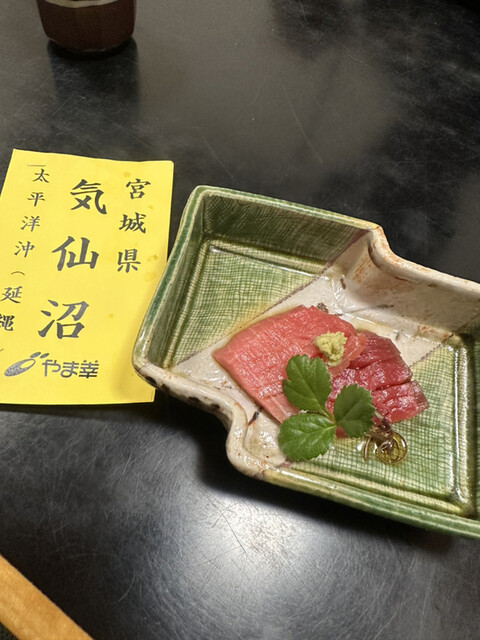 宮城県
気仙沼
太平洋沖(延縄
やま幸